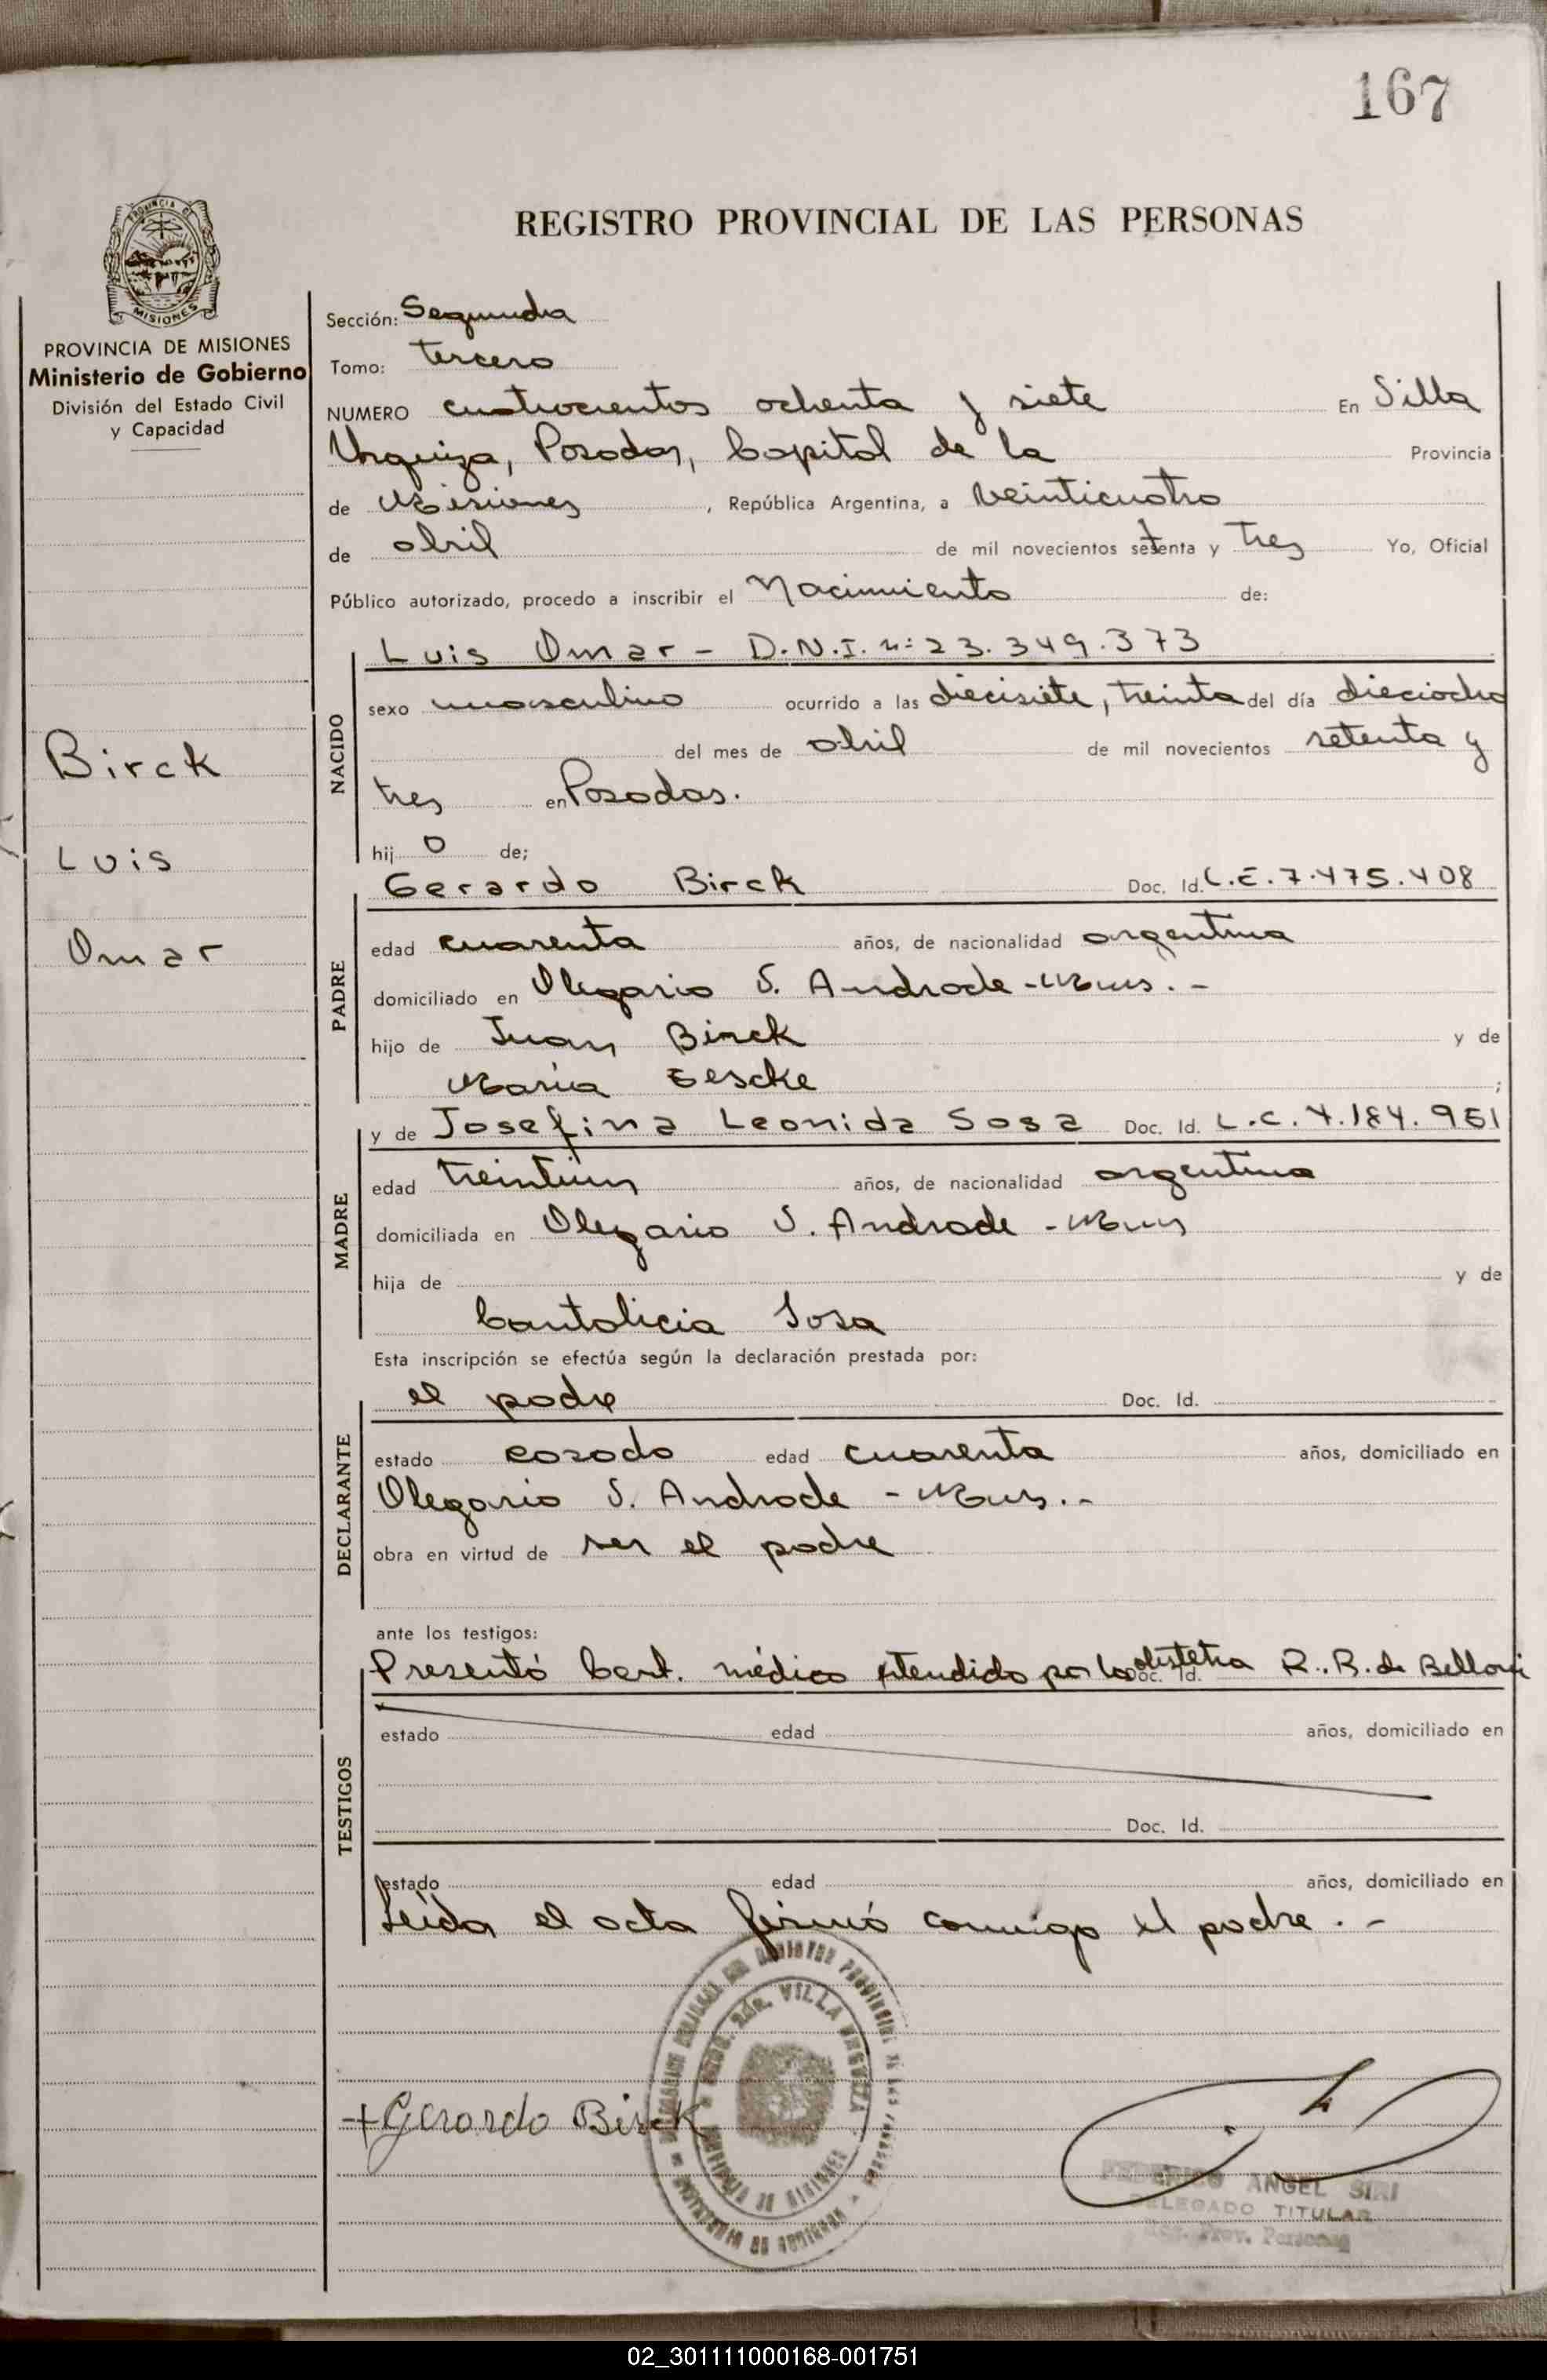 167
REGISTRO PROVINCIAL DE LAS PERSONAS
PROVINCIA DE MISIONES
PROVINCIA DE MISIONES
Ministerio de Gobierno
División del Estado Civil
y Capacidad
Birck
Luis
Omar
Sección: Segunda
Tomo: tercero
NUMERO cuatrocientos ochenta y siete En Villa
Urquiza, Posadas, Capital de la Provincia
de Misiones, República Argentina, a veinticuatro
de abril de mil novecientos setenta y tres Yo, Oficial
Público autorizado, procedo a inscribir el Nacimiento de:
NACIDO
Luis Omar - D.N.I. n: 23.349.373
sexo masculino ocurrido a las diecisiete, treinta del día dieciocho
del mes de abril de mil novecientos setenta y
tres en Posadas.
hij o de;
PADRE
Gerardo Birck Doc. Id. L.E. 7.475.408
edad cuarenta años, de nacionalidad argentina
domiciliado en Olegario V. Andrade - Mnes. -
hijo de Juan Birck y de
María Gescke ;
MADRE
y de Josefina Leonida Sosa Doc. Id. L.C. 4.184.951
edad treintiun años, de nacionalidad argentina
domiciliada en Olegario V. Andrade - Mnes
hija de y de
Cantalicia Sosa
Esta inscripción se efectúa según la declaración prestada por:
DECLARANTE
el padre Doc. Id.
estado casado edad cuarenta años, domiciliado en
Olegario V. Andrade - Mnes. -
obra en virtud de ser el padre
ante los testigos:
TESTIGOS
Presentó Cert. médico atendido por la obstetra R. R. de Belloni
Doc. Id.
estado edad años, domiciliado en
Doc. Id.
estado edad años, domiciliado en
Leída el acta firmó conmigo el padre. -
VILLA URQUIZA
+ Gerardo Birck
FEDERICO ANGEL SIRI
DELEGADO TITULAR
Reg. Prov. Personas
02_301111000168-001751